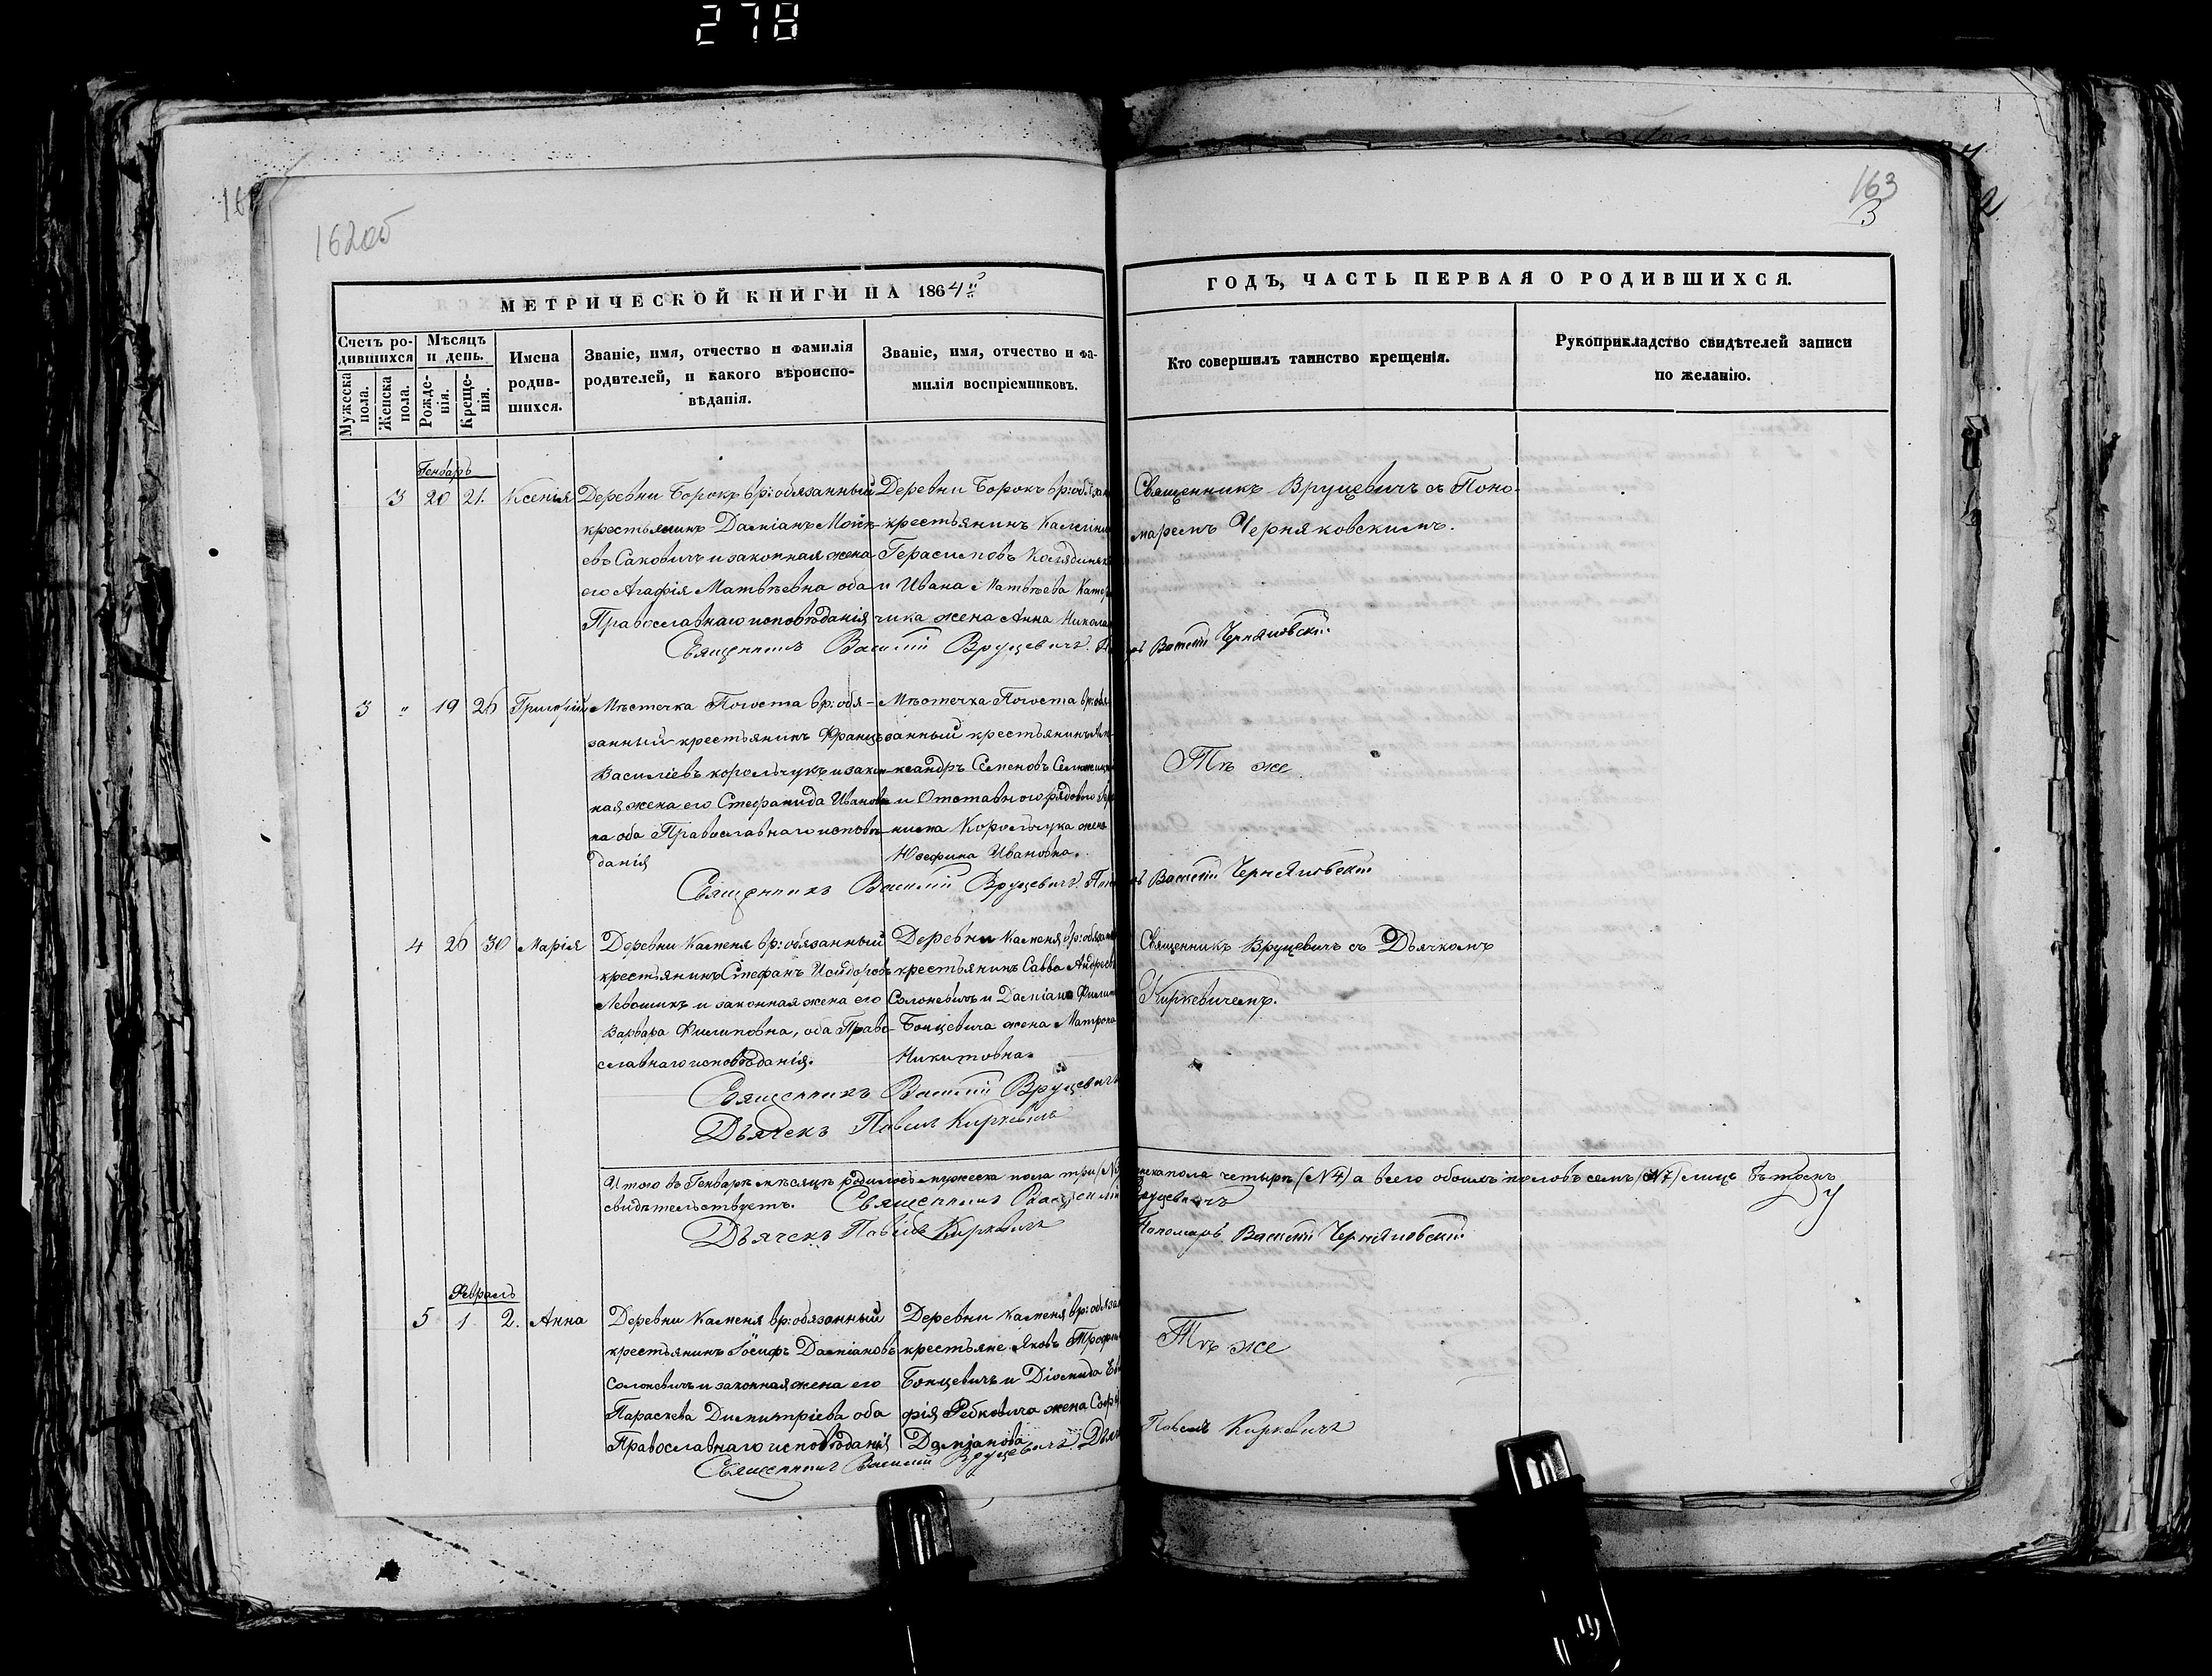 278
162об
163
3
МЕТРИЧЕСКОЙ КНИГИ НА 1864й
ГОДЪ, ЧАСТЬ ПЕРВАЯ О РОДИВШИХСЯ.
Счетъ ро-
дившихся
Мужеска
пола.
Женска
пола.
Мѣсяцъ
и день.
Рожде-
нія.
Креще-
нія.
Имена
родив-
шихся.
Званіе, имя, отчество и фамилія
родителей, и какого вѣроиспо-
вѣданія.
Званіе, имя, отчество и фа-
милія воспріемниковъ.
Кто совершилъ таинство крещенія.
Рукоприкладство свидѣтелей записи
по желанію.
Генварь
3 20 21. Ксенія
Деревни Борокъ вр: обязанный
крестьянинъ Даміанъ Мойсѣ-
евъ Саковичъ и законная жена
его Агафія Матвѣевна оба
Православнаго исповѣданія
Деревни Борокъ вр: обязан
крестьянинъ
Герасимовъ
и Ивана Матвѣева
чика жена Анна Никола
Священникъ Вруцевичъ съ Поно-
маремъ Черняковскимъ.
Священникъ Василій Вруцевичъ.
Василій Черняковскій
3 " 19 26 Григорій
Мѣстечка Погоста вр: обя-
занный крестьянинъ Францъ
Василіевъ корольчукъ и закон-
ная жена его Стефанида Иванов-
на оба Православнаго исповѣ-
данія
Мѣстечка Погоста вр: обя
занный крестьянинъ Але
ксандръ Семеновъ
и Отставного рядового
Корольчука жена
Юзефина Ивановна.
Тѣ же
Священникъ Василій Вруцевичъ. Пон
Василій Черняковскій
4 26 30 Марія
Деревни Каменя вр: обязанный
крестьянинъ Стефанъ Исидоровъ
Левошикъ и законная жена его
Варвара Филиповна, оба Право-
славнаго исповѣданія.
Деревни Каменя вр: обязан
крестьянинъ Савва Андреевъ
Солоневичъ и Даміана Филип
Бонцевича жена Матрона
Никитовна.
Священникъ Вруцевичъ съ Дьячкомъ
Киркевичемъ.
Священникъ Василій Вруцевичъ
Дьячекъ Павелъ Киркевичъ
Итого въ Генварѣ мѣсяцѣ родилось мужеска пола три (№3) женска пола четыре (№4) а всего обоихъ половъ семь (№7) лицъ въ томъ
свидѣтельствуетъ. Священникъ Василій Вруцевичъ
Дьячекъ Павелъ Киркевичъ
Пономарь Василій Черняковскій
Февраль
5 1 2. Анна
Деревни Каменя вр: обязанный
крестьянинъ Іосифъ Даміановъ
Солоневичъ и законная жена его
Параскева Димитріева оба
Православнаго исповѣданія
Деревни Каменя вр: обязан
крестьяне Яковъ Трофим
Бонцевичъ и Діомида Ев
фія Ребковича жена Софія
Даміанова
Тѣ же
Священникъ Василій Вруцевичъ. Дьяч
Павелъ Киркевичъ